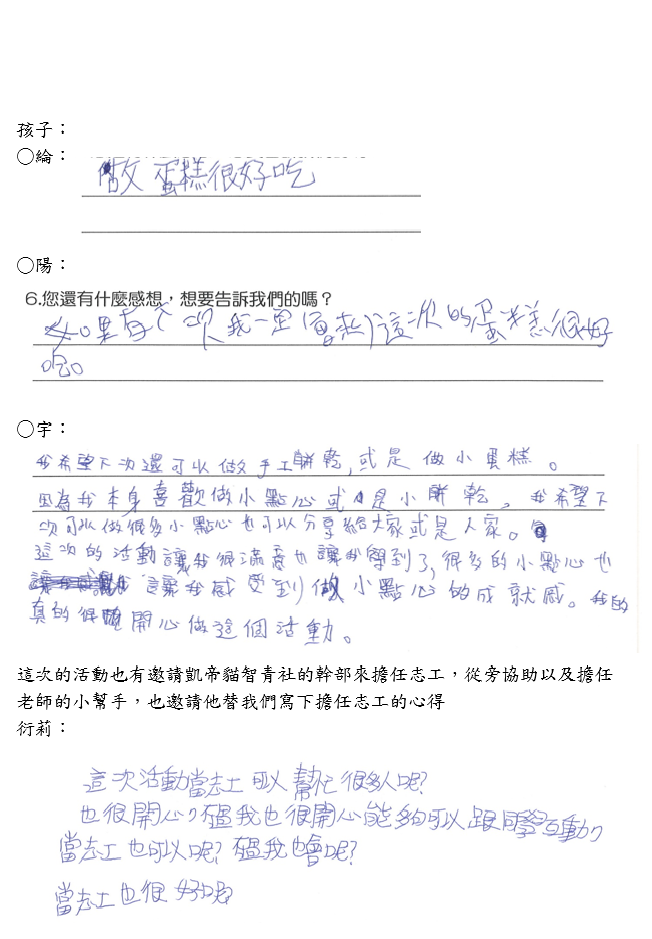 孩子：
○綸：
做蛋糕很好吃
○陽：
6.您還有什麼感想，想要告訴我們的嗎？
如果有下次我一定會參加這次的蛋糕很好
吃。
○宇：
我希望下次還可以做手工餅乾，或是做小蛋糕。
因為我本身喜歡做小點心或是小餅乾，我希望下
次可以做很多小點心也可以分享給大家或是人家。
這次的活動讓我很滿意也讓我得到了，很多的小點心也
讓我感受到做小點心的成就感。我的
真的很 開心做這個活動。
這次的活動也有邀請凱帝貓智青社的幹部來擔任志工，從旁協助以及擔任
老師的小幫手，也邀請他替我們寫下擔任志工的心得
衍莉：
這次活動當志工可以幫忙很多人呢？
也很開心 我也很開心能夠可以跟同學互動
當志工也可以呢？ 我也會呢？
當志工也很好呢